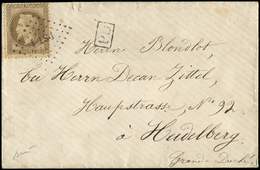 PD
Herrn Blondlot,
bei Herrn Decan Zittel,
Haupstrasse, No 92
à Heidelberg
(Grand-Duché